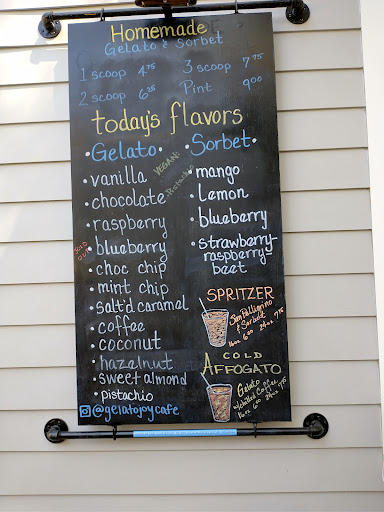 Homemade
Gelato & Sorbet
1 scoop 4.75
3 scoop 7.75
2 scoop 6.25
Pint 9.00
today's flavors
Gelato
VEGAN:
Pistachio
• vanilla
• chocolate
• raspberry
SOLD OUT
• blueberry
• choc chip
• mint chip
• salt'd caramel
• coffee
• coconut
• hazelnut
• sweet almond
• pistachio
@gelatojoycafe
• Sorbet
• mango
• Lemon
• blueberry
• strawberry-
raspberry-
beet
SPRITZER
San Pellegrino
& Sorbet
16oz 6.00 24oz 7.75
COLD
AFFOGATO
Gelato
w/chilled Coffee
16oz 6.00 24oz 7.75